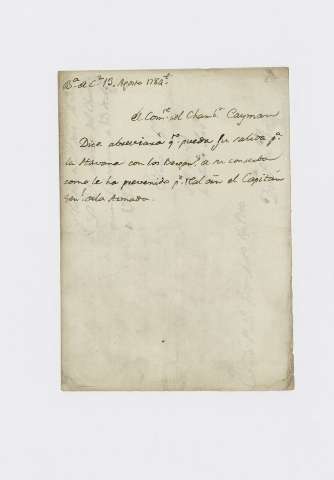 Bª de Cª 13. Agosto 1784.
El Comte del Chambn Cayman
Dice abreviará qto pueda su salida pª
la Havana con los Bergns a su conserba
como le ha prevenido pr Rl oñ el Capitán
Genl de la Armada.